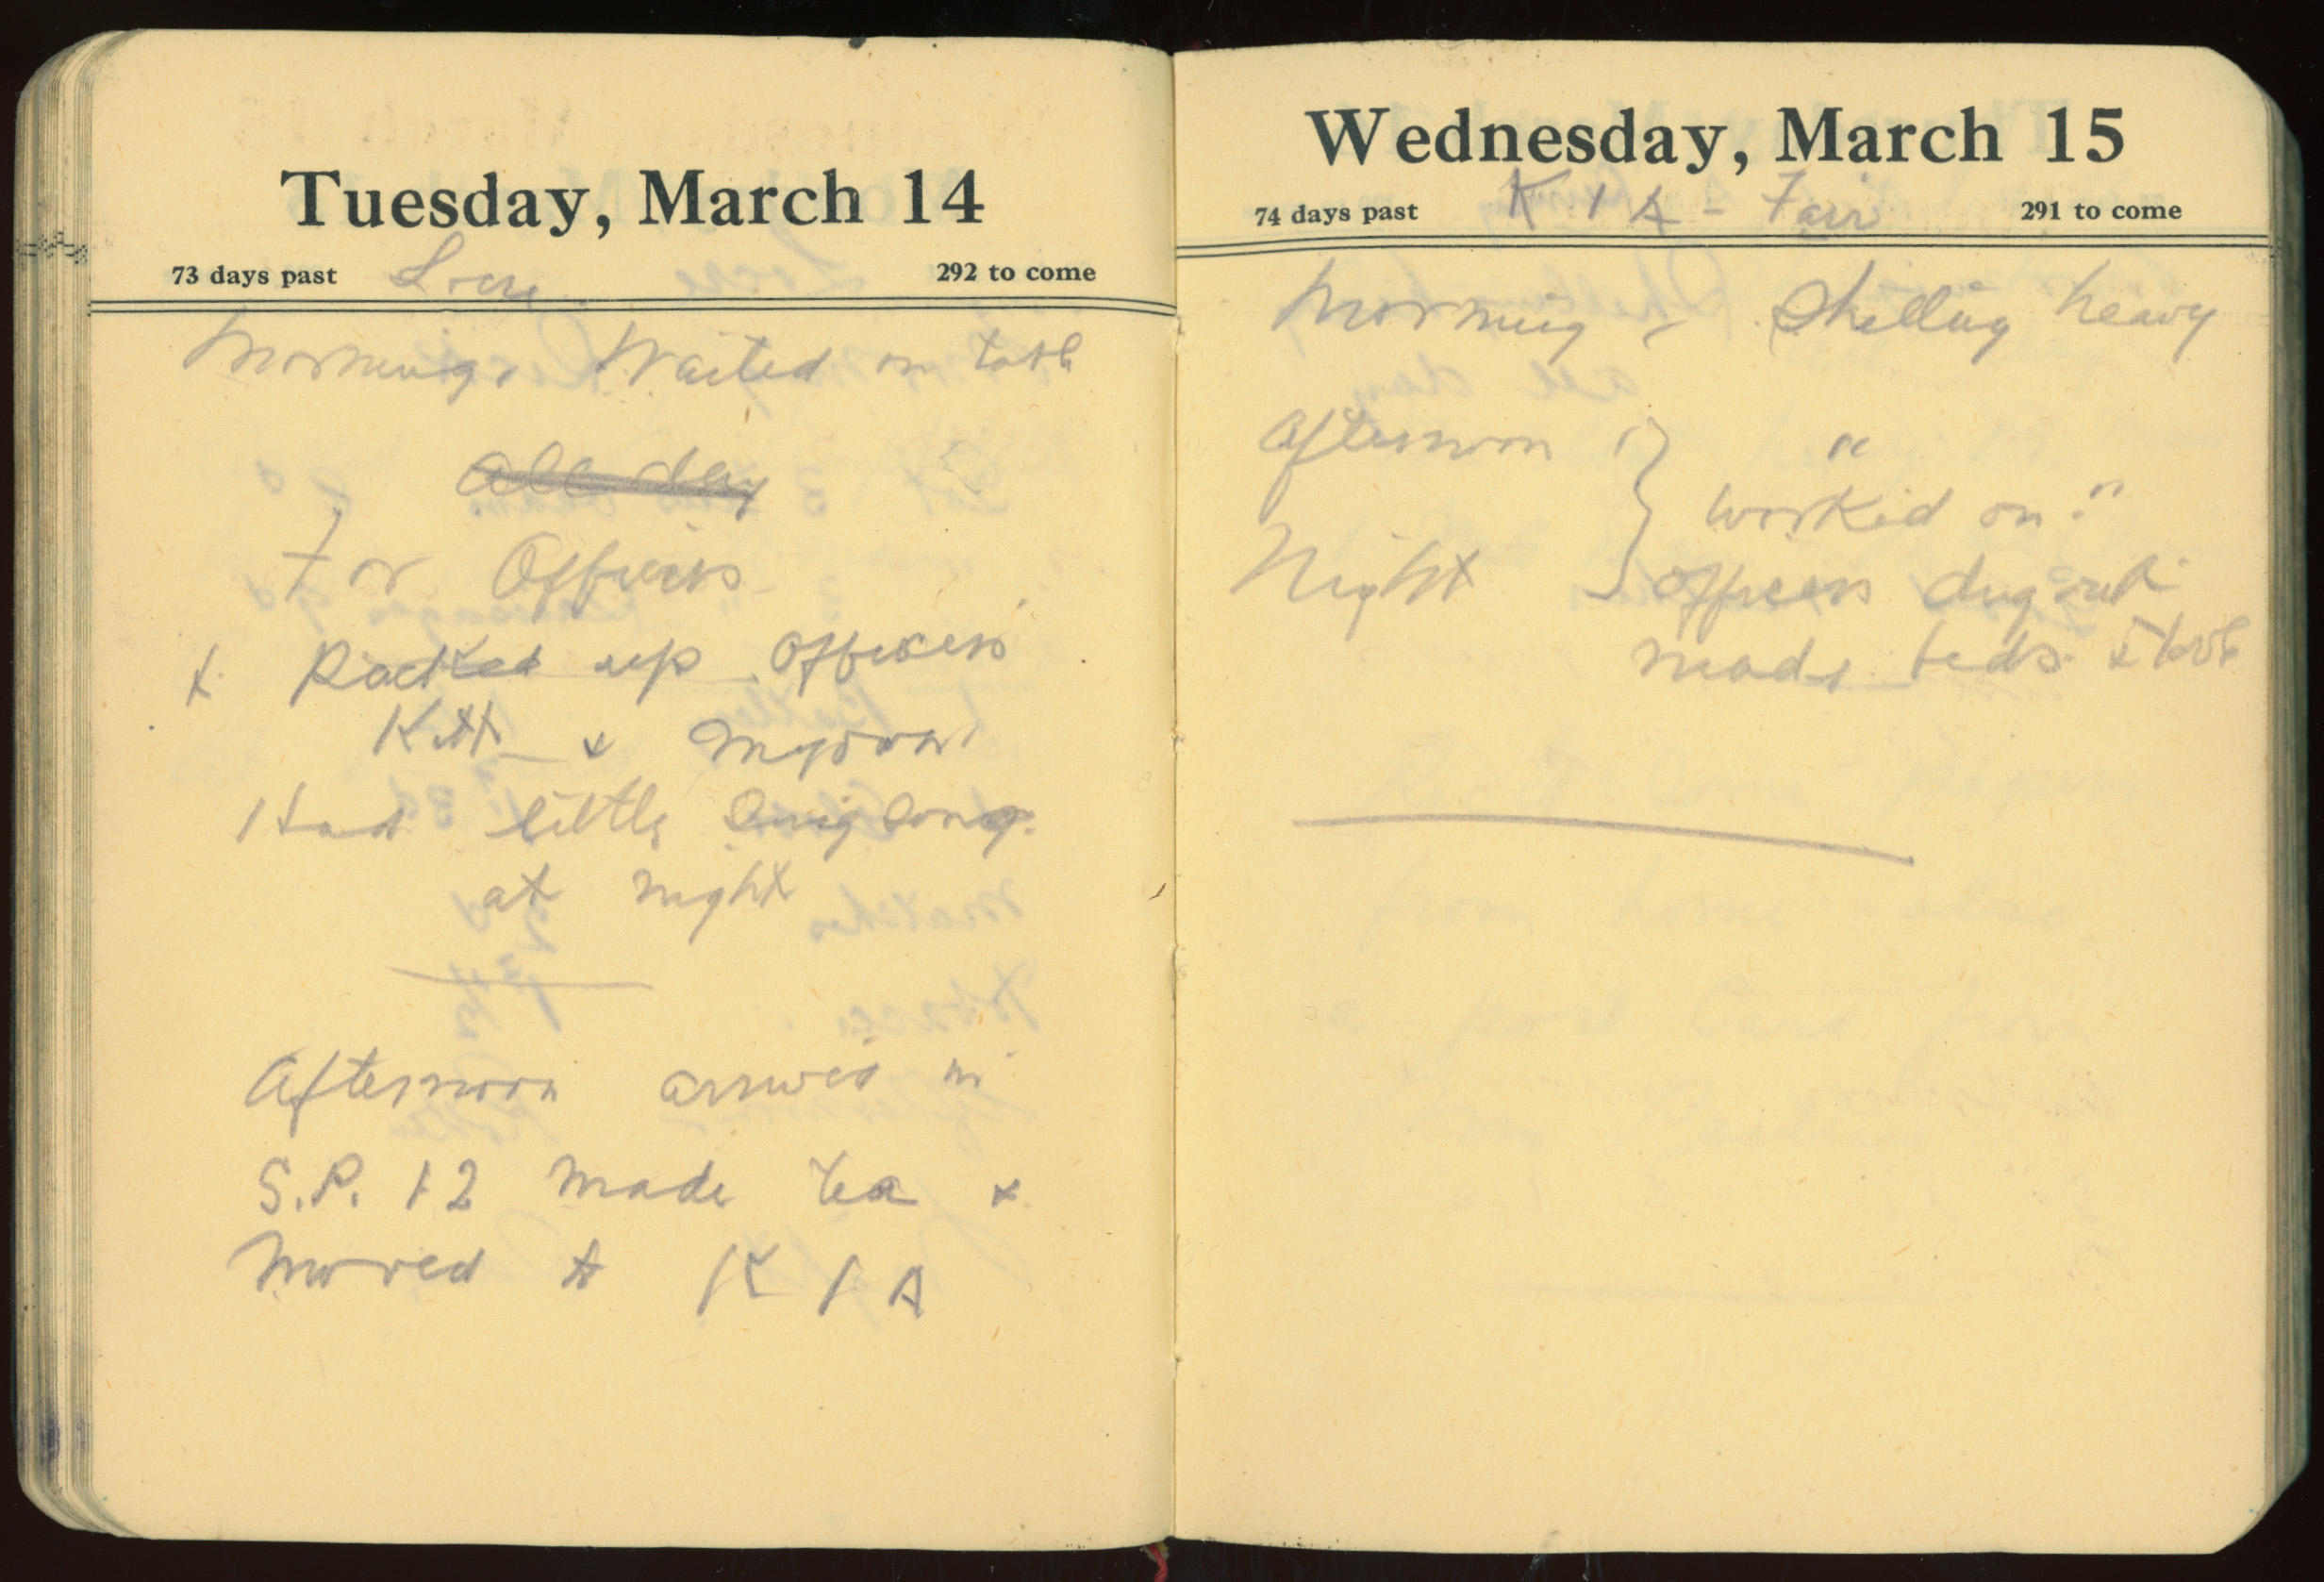 Tuesday, March 14
73 days past Locre 292 to come
Morning, Waited on table
all day
For Officers
+ Packed up Officers
Kitt + my own
Had little sing song
at night
Afternoon arrived in
S.P. 12 made tea +
Moved to K 1 A
Wednesday, March 15
74 days past K 1 A - Fair 291 to come
Morning - Shelling heavy
Afternoon "
worked on "
Night Officers dug out
made beds + table